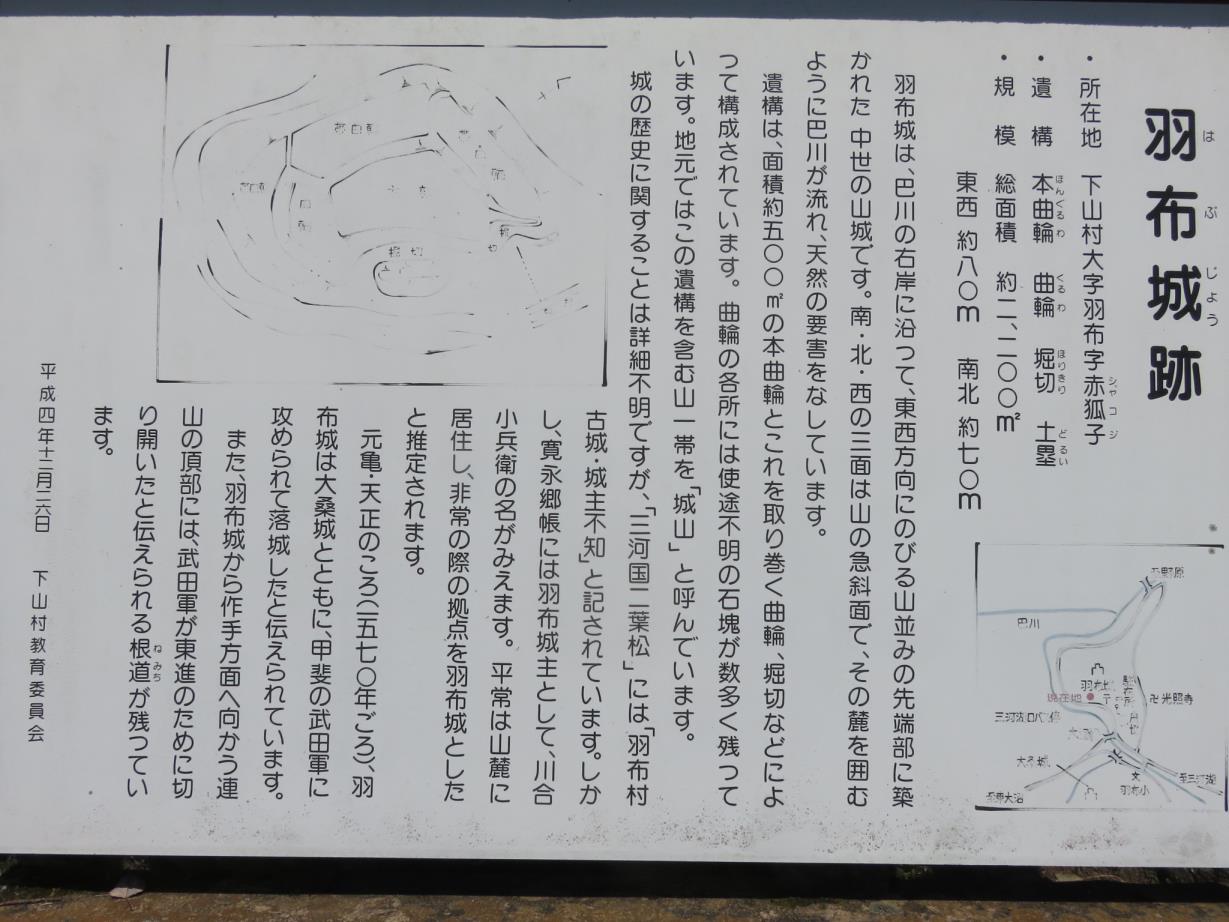 羽布城跡
はぶじょう
・所在地 下山村大字羽布字赤狐子
シャコジ
・遺構 本曲輪 曲輪 堀切 土塁
ほんぐるわ くるわ ほりきり どるい
・規模 総面積 約二、二〇〇㎡
東西 約八〇m 南北 約七〇m
羽布城は、巴川の右岸に沿って、東西方向にのびる山並みの先端部に築
かれた 中世の山城です。南・北・西の三面は山の急斜面で、その麓を囲む
ように巴川が流れ、天然の要害をなしています。
遺構は、面積約五〇〇㎡の本曲輪とこれを取り巻く曲輪、堀切などによ
って構成されています。曲輪の各所には使途不明の石塊が数多く残って
います。地元ではこの遺構を含む山一帯を「城山」と呼んでいます。
城の歴史に関することは詳細不明ですが、「三河国二葉松」には「羽布村
古城・城主不知」と記されています。しか
し、寛永郷帳には羽布城主として、川合
小兵衛の名がみえます。平常は山麓に
居住し、非常の際の拠点を羽布城とした
と推定されます。
元亀・天正のころ(一五七〇年ごろ)、羽
布城は大桑城とともに、甲斐の武田軍に
攻められて落城したと伝えられています。
また、羽布城から作手方面へ向かう連
山の頂部には、武田軍が東進のために切
り開いたと伝えられる根道が残ってい
ねみち
ます。
平成四年十二月二六日 下山村教育委員会
堀切
巴川
羽布城
現在地
卍光照寺
文
羽布小
至三河湖
至東大沼